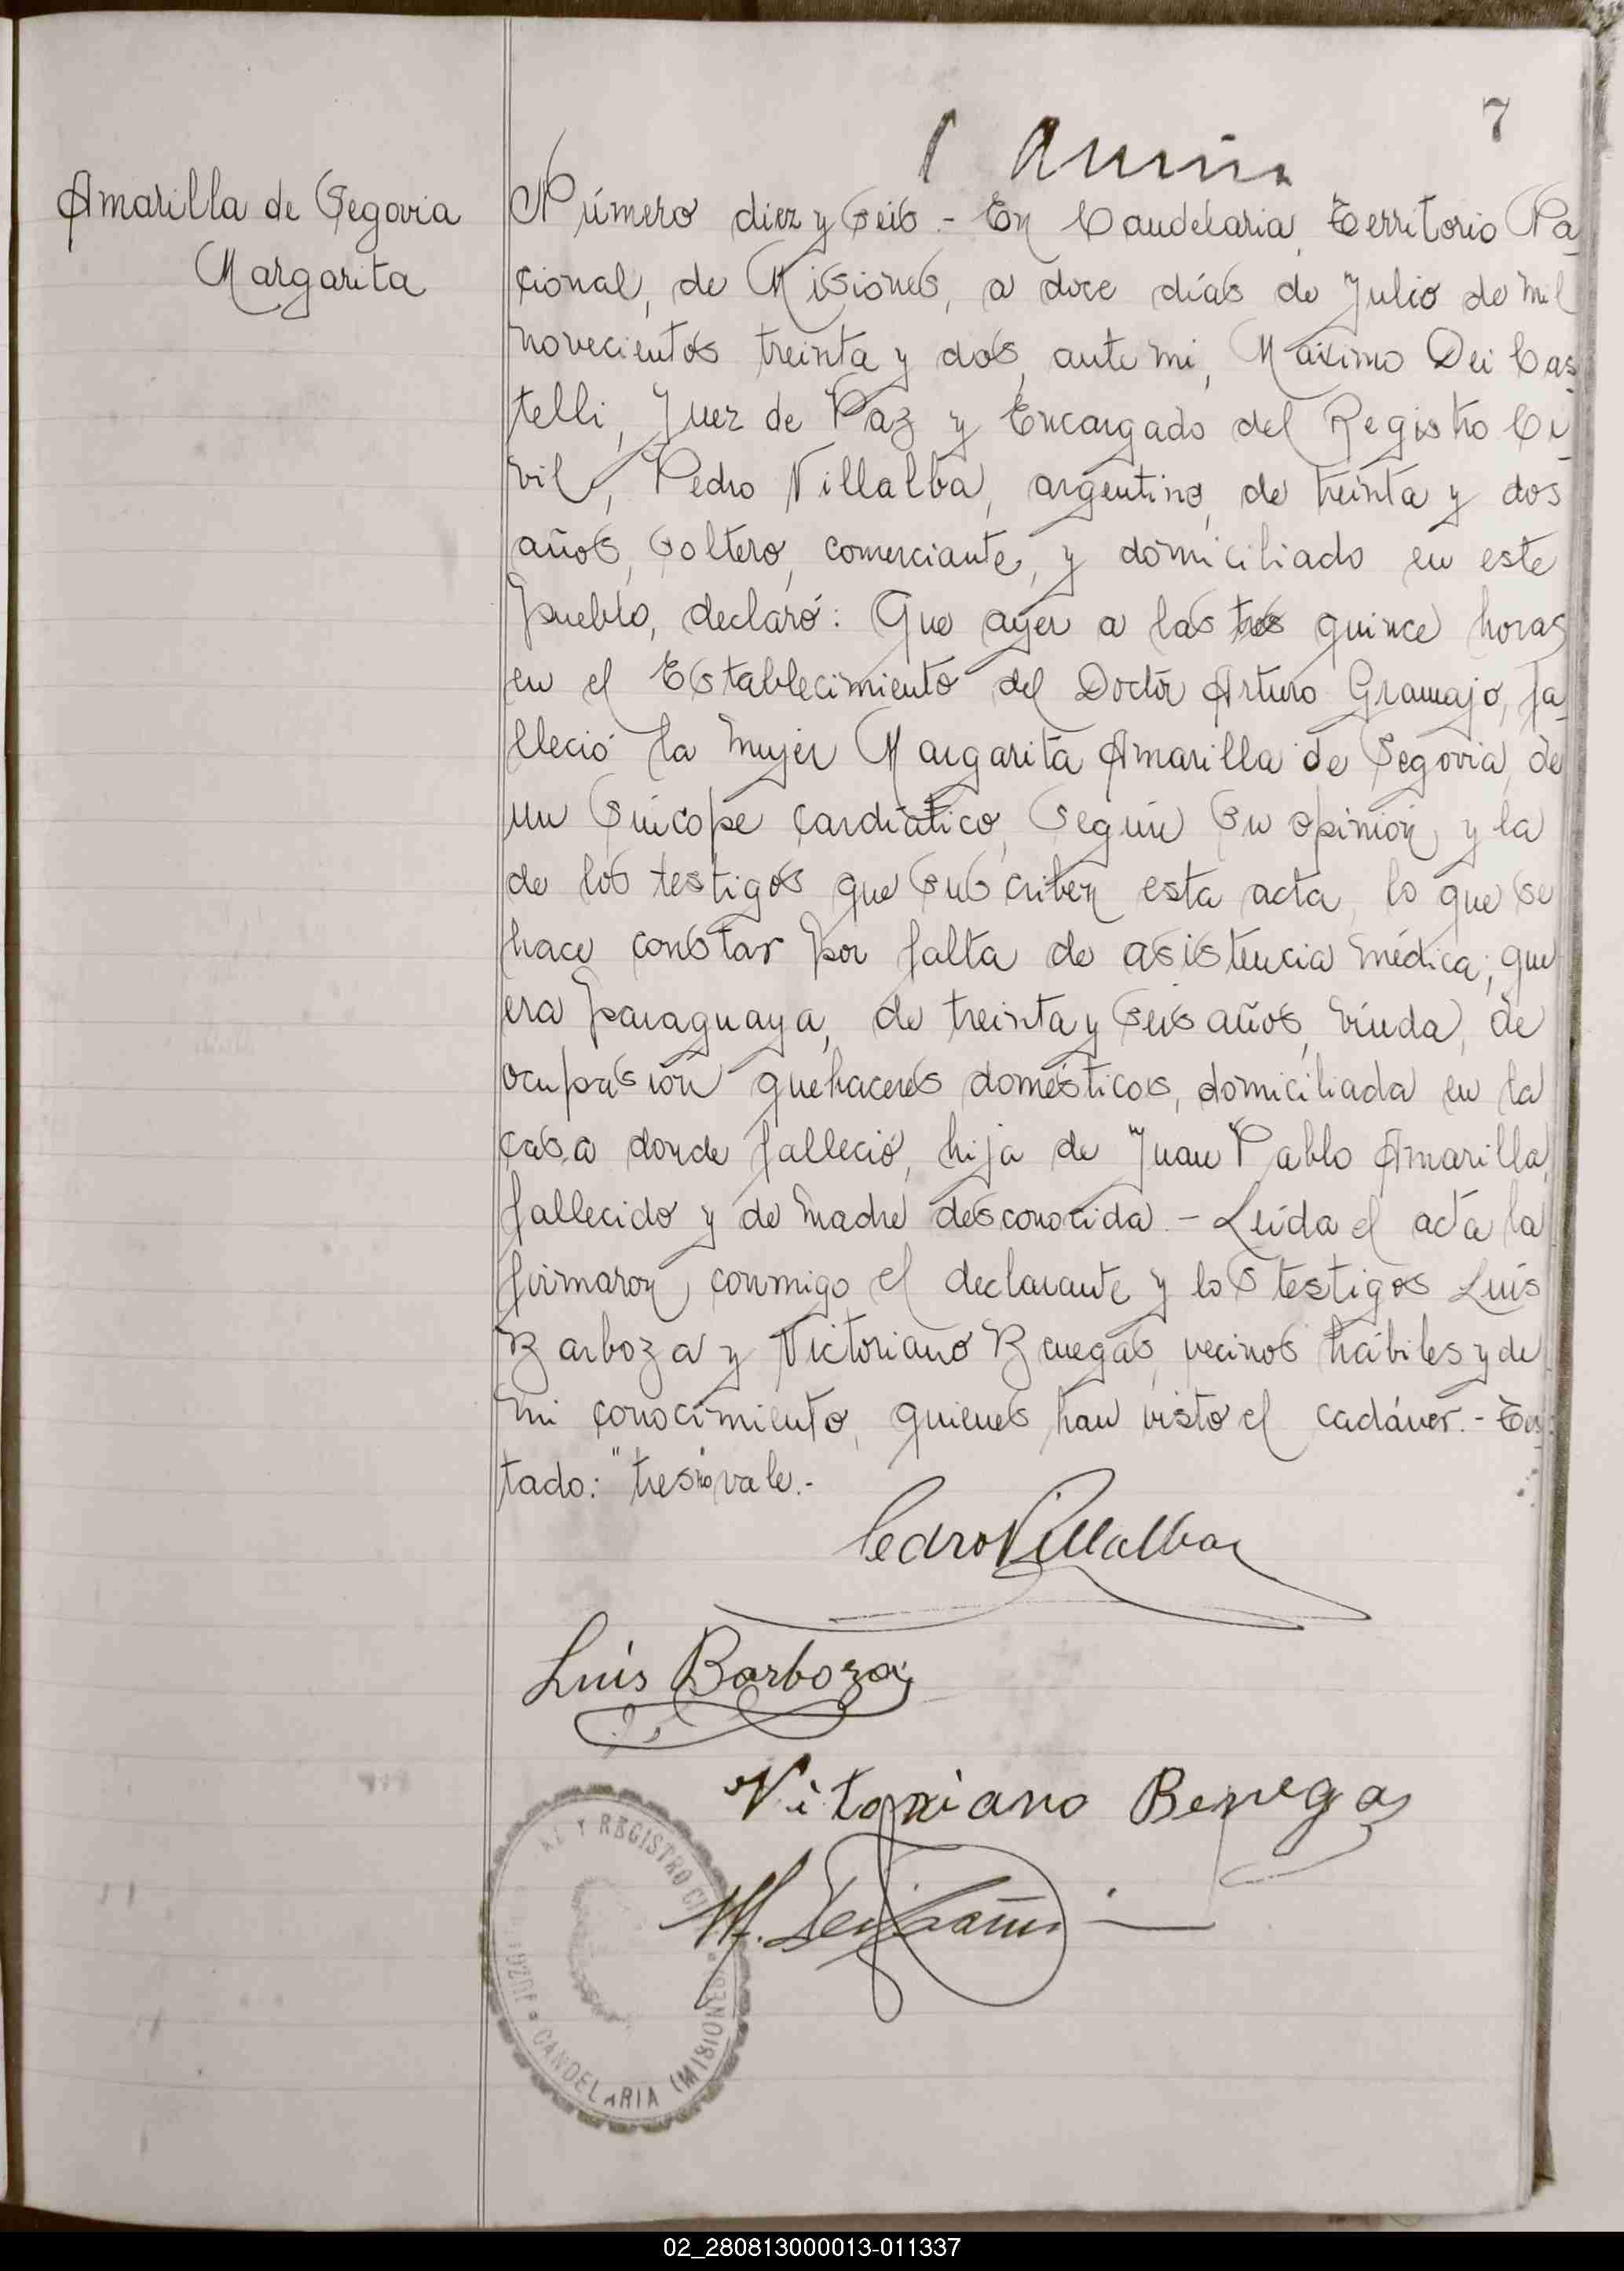 7
Amarilla de Segovia
Margarita
Número diez y seis.- En Candelaria, Territorio Na-
cional, de Misiones, a doce días de Julio de mil
novecientos treinta y dos, ante mi, Máximo Dei Cas-
telli, Juez de Paz y Encargado del Registro Ci-
vil, Pedro Villalba, argentino, de treinta y dos
años, soltero, comerciante, y domiciliado en este
pueblo, declaró: Que ayer a las tres quince horas
en el Establecimiento del Doctor Arturo Gramajo, fa-
lleció la mujer Margarita Amarilla de Segovia, de
un síncope cardiático, según su opinión, y la
de los testigos que subscriben esta acta, lo que se
hace constar por falta de asistencia médica; que
era paraguaya, de treinta y seis años, viuda, de
ocupasión quehaceres domésticos, domiciliada en la
casa donde falleció, hija de Juan Pablo Amarilla,
fallecido y de madre desconocida.- Leída el acta la
firmaron conmigo el declarante y los testigos Luis
Barboza y Victoriano Benegas, vecinos hábiles y de
mi conocimiento, quienes han visto el cadáver.- Tes-
tado: "tres" no vale.-
Pedro Villalba
Luis Barboza
Vitoriano Benegas
Y REGISTRO CI
JUZG
CANDELARIA (MISIONES)
02_280813000013-011337